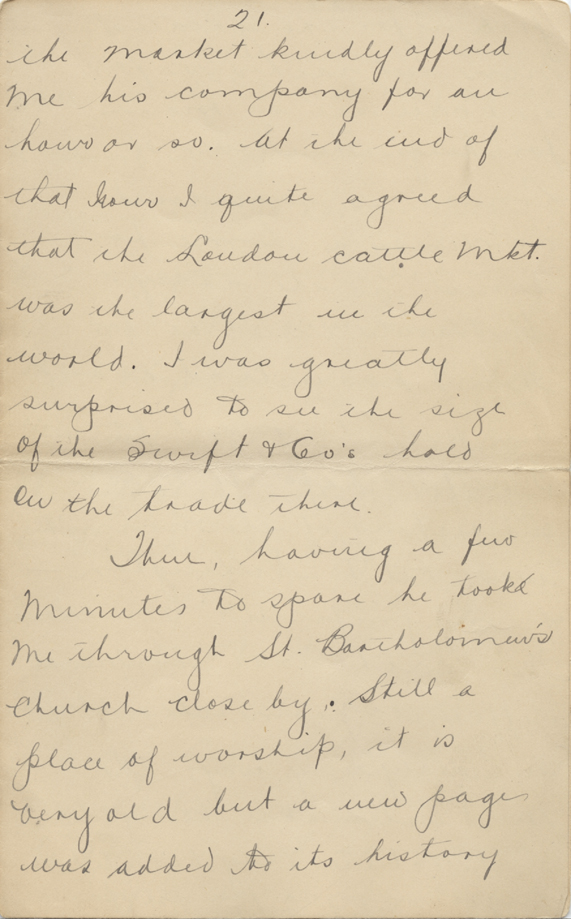 21.
the market kindly offered
me his company for an
hour or so. At the end of
that hour I quite agreed
that the London cattle Mkt.
was the largest in the
world. I was greatly
surprised to see the size
of the Swift & Co's hold
on the trade there.
Then, having a few
minutes to spare he took
me through St. Bartholomew's
Church close by. Still a
place of worship, it is
very old but a new page
was added to its history